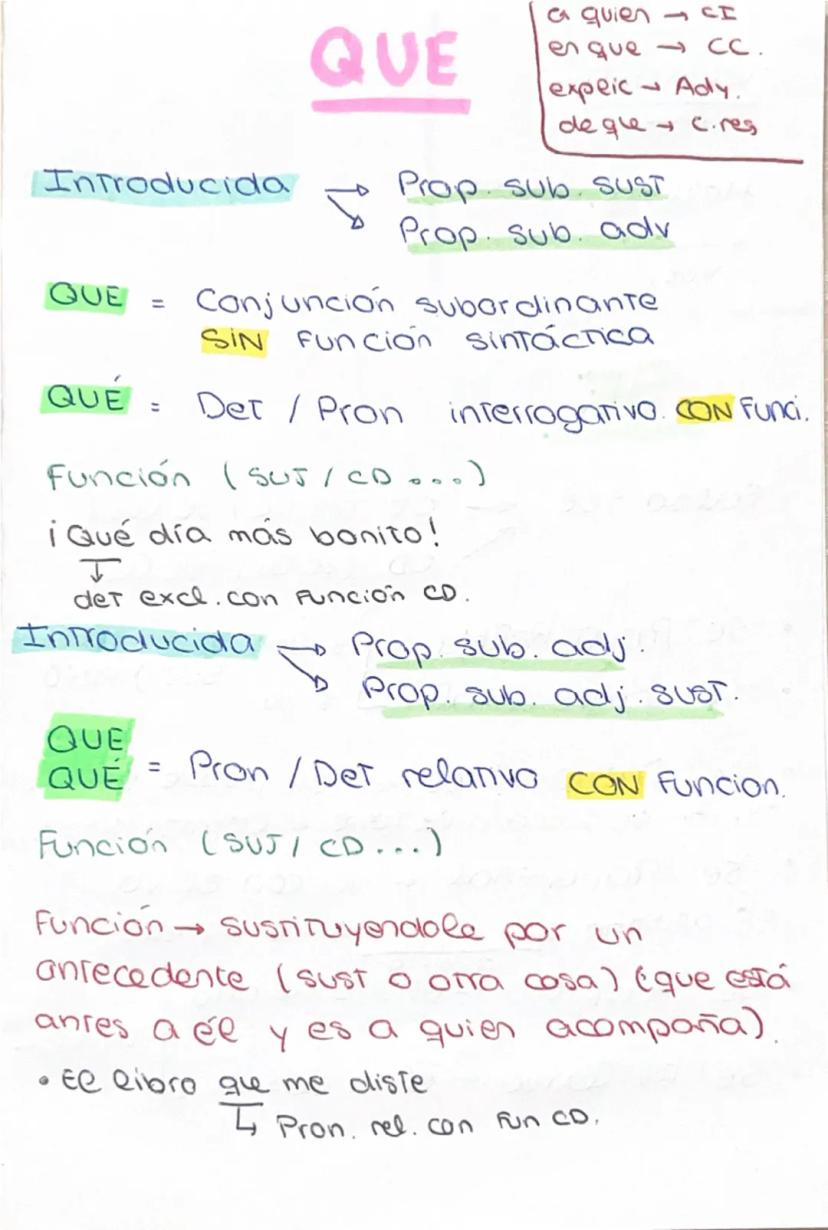 QUE
a quien → CI
en que → CC.
expeic → Ady.
de que → C.reg
Introducida → Prop. sub. sust
↘ Prop. sub. adv
QUE = Conjunción subordinante
SIN Función sintáctica
QUÉ = Det / Pron interrogativo. CON Funci.
Función (SUJ / CD...)
¡Qué día más bonito!
↓
det excl. con Función CD.
Introducida → Prop. sub. adj.
↘ Prop. sub. adj. sust.
QUE
QUÉ = Pron / Det relativo CON Funcion.
Función (SUJ / CD...)
Función → sustituyendole por un
antecedente (sust o otra cosa) (que está
antes a él y es a quien acompaña).
• El libro que me diste
↳ Pron. rel. con Fun CD.